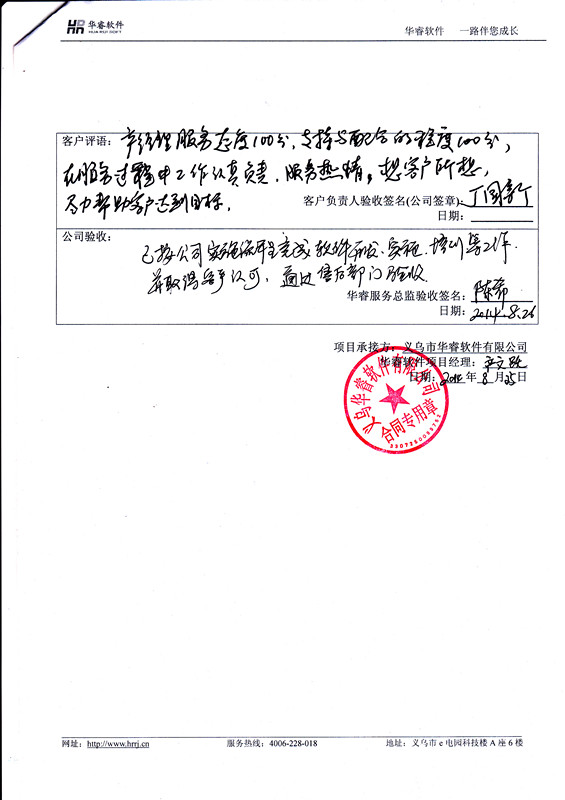 华睿软件
HUA RUI SOFT
华睿软件 一路伴您成长
客户评语：辛经理服务态度100分，支持与配合的程度100分，
在服务过程中工作认真负责，服务热情，想客户所想，
尽力帮助客户达到目标。
客户负责人验收签名(公司签章)：
日期：
公司验收：
已按公司实施流程完成软件开发、实施、培训等工作.
并取得客户认可，通过售后部门验收
华睿服务总监验收签名：陈希
日期：2014.8.26
项目承接方：义乌市华睿软件有限公司
华睿软件项目经理：
日期：年8月25日
义乌华睿软件有限公司
合同专用章
网址：http://www.hrrj.cn 服务热线：4006-228-018 地址：义乌市e电园科技楼A座6楼